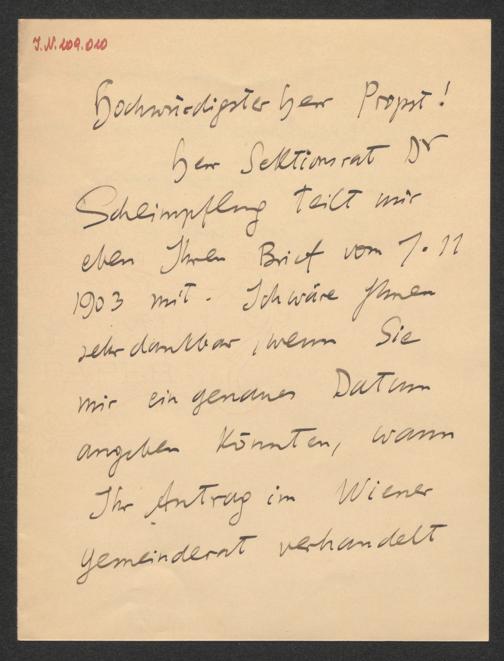 J.N. 109.010
Hochwürdigster Herr Propst!
Herr Sektionsrat Dr
Scheimpflug teilt mir
eben Ihren Brief vom 7. 11
1903 mit. Ich wäre Ihnen
sehr dankbar, wenn Sie
mir ein genaues Datum
angeben könnten, wann
Ihr Antrag im Wiener
Gemeinderat verhandelt